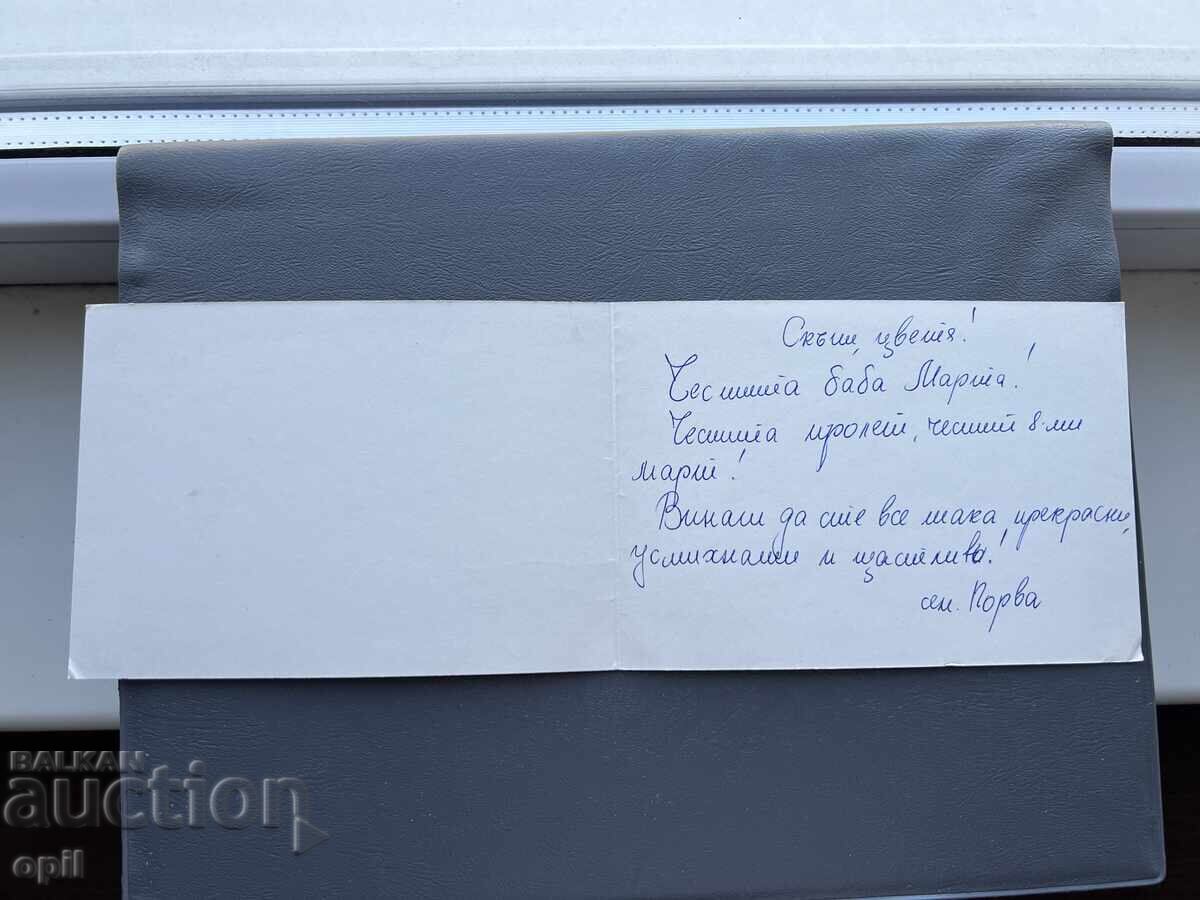 Скъпи цветя!
Честита баба Марта!
Честита пролет, честит 8-ми
март!
Винаги да сте все така прекрасни,
усмихнати и щастливи!
сем. Порва
BALKAN
auction
opil